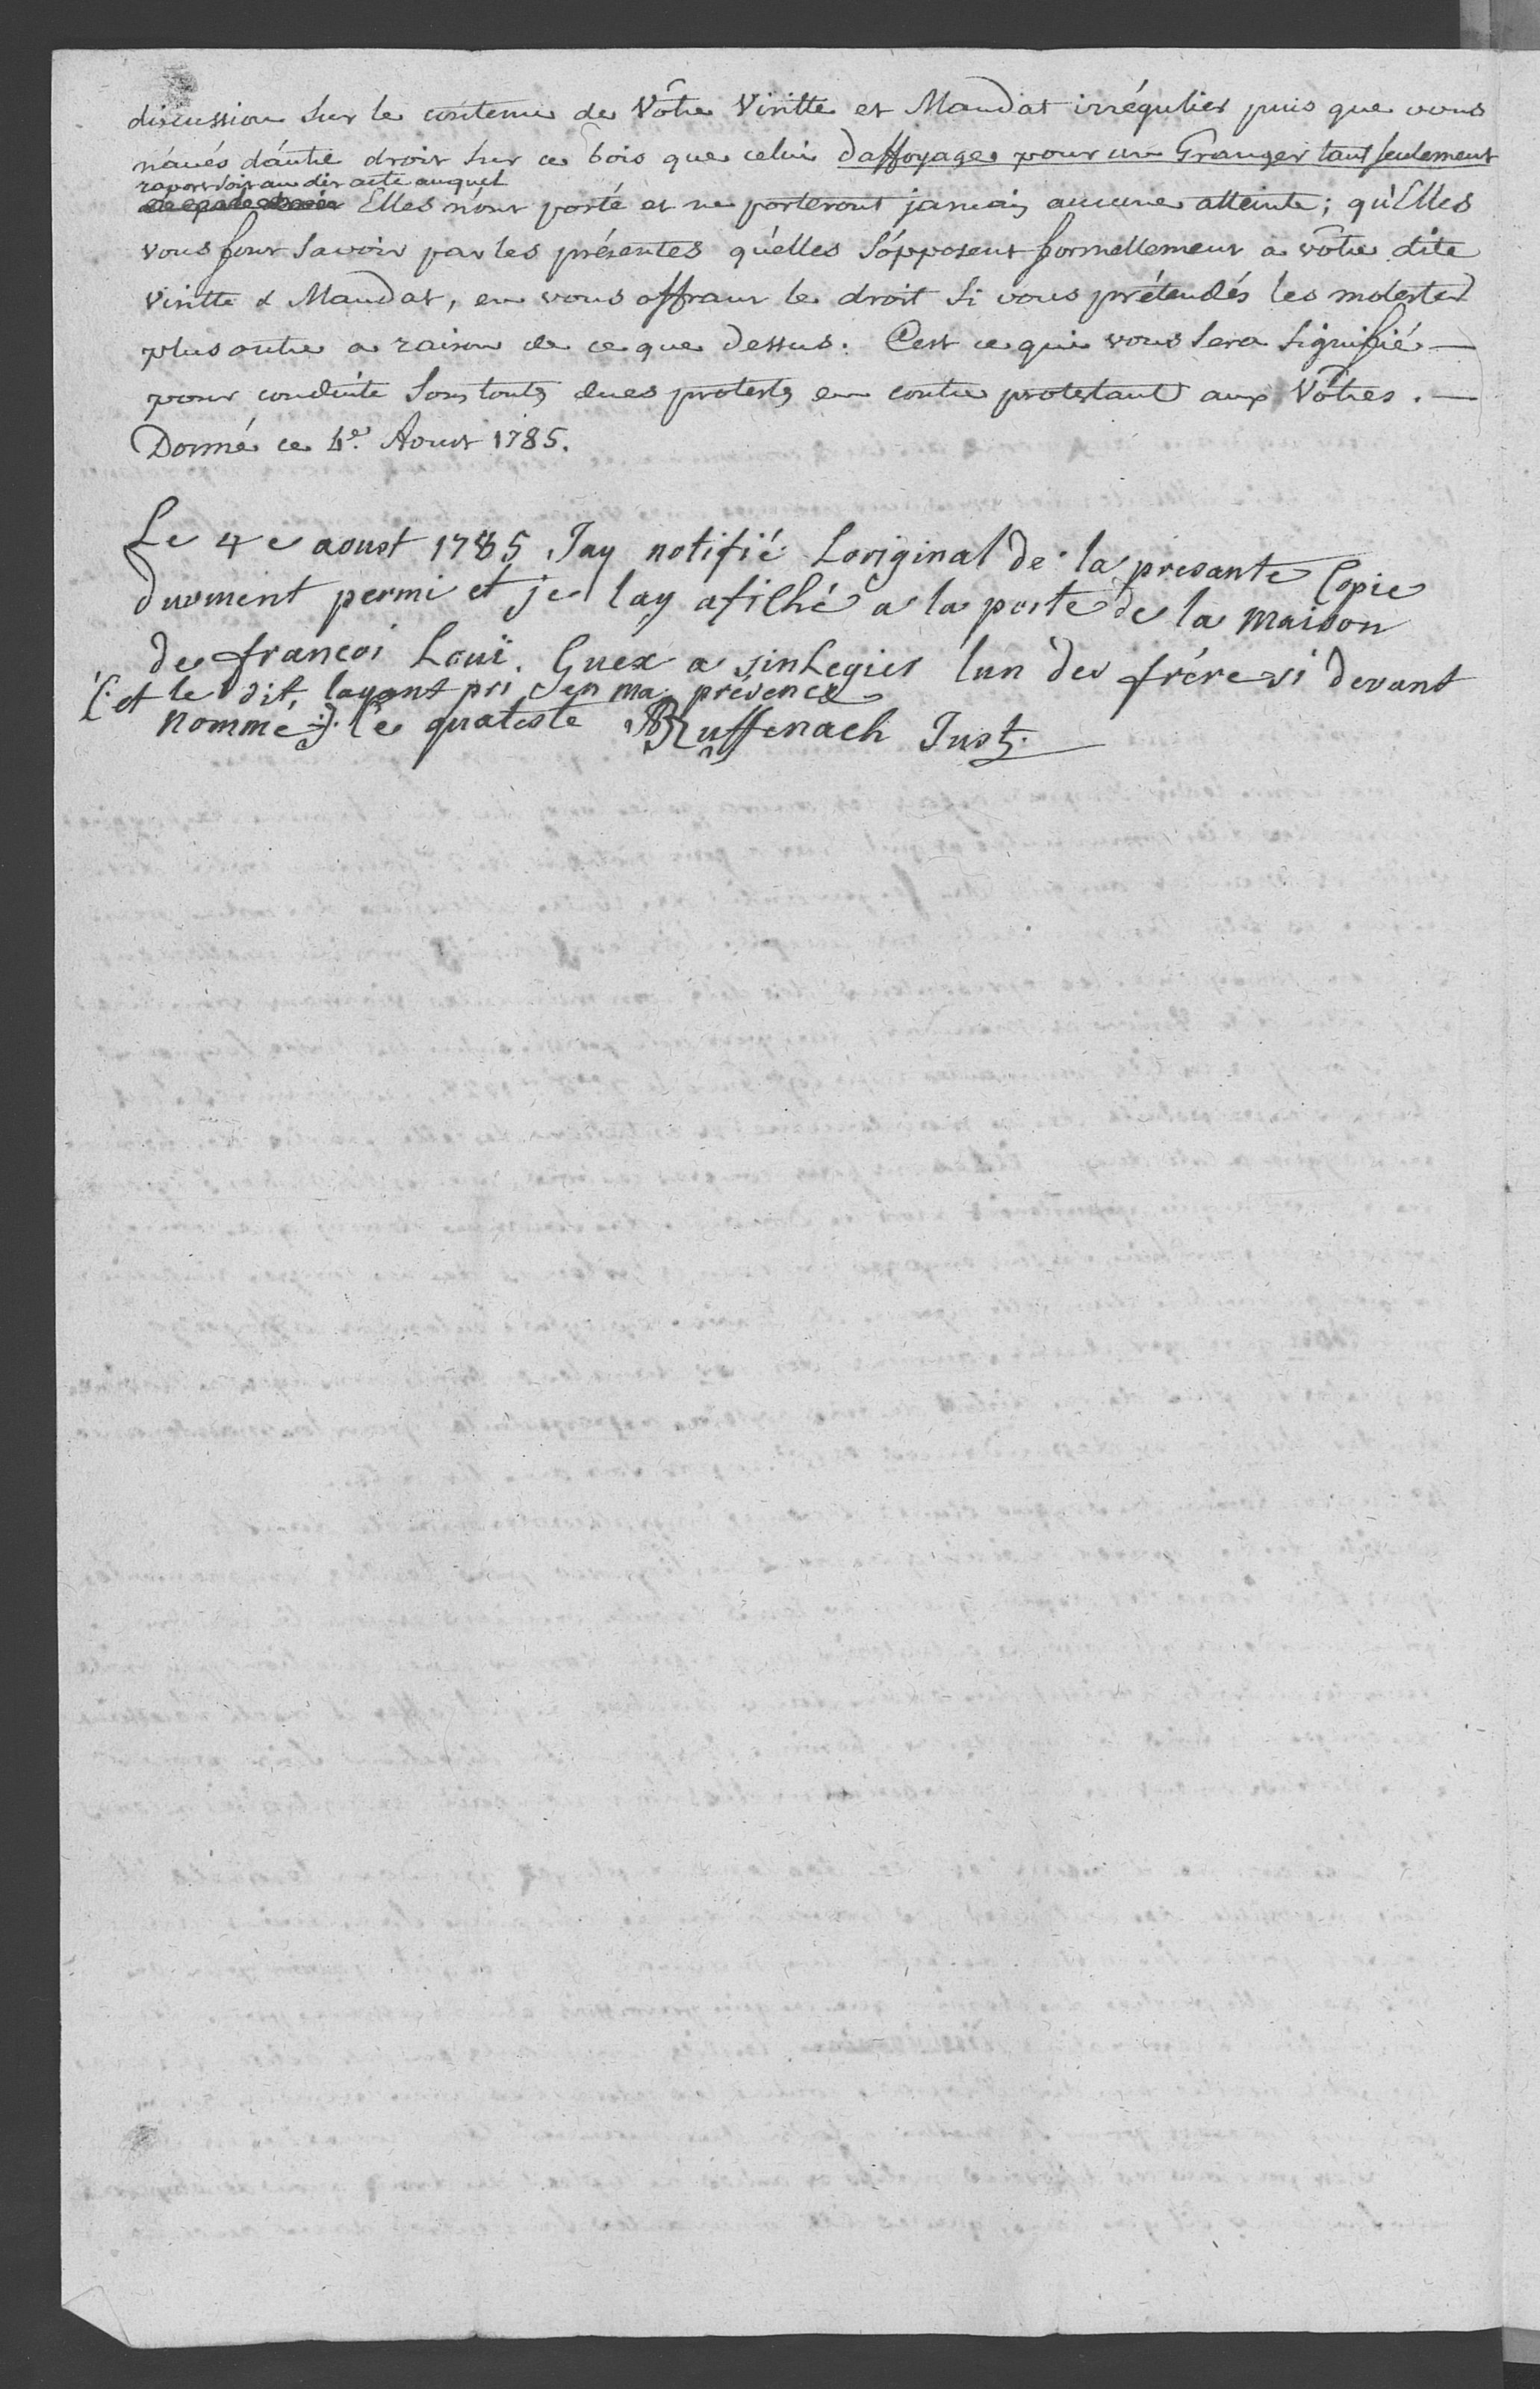 discussion sur le contenu de Vôtre Visitte et Mandat irrégulier puis que vous
n'avés d'autre droit sur ce bois que celui d'affoyage pour un Granger tant seulement
raport soit au dit acte auquel
Elles n'ont porté et ne porteront jamais aucune atteinte; qu'Elles
vous font savoir par les présentes qu'elles s'opposent formellement à vôtre dite
Visitte & Mandat, en vous offrant le droit si vous prétendés les molester
plus outre a raison de ce que dessus. C'est ce qui vous sera signifié —
pour conduite sous touts dues protests en contre protestant aux Vôtres. —
Donné ce 4e. Aoust 1785.
Le 4e aoust 1785 Jay notifié Loriginal de la presante Copie
duement permi et je lay afiché a la porte de la maison
de françoi Louï. Guex a sinLegier lun des frère si devant
(: et le dit, layant pri en ma présence
nommé :). le quateste ABRuffenach Just.